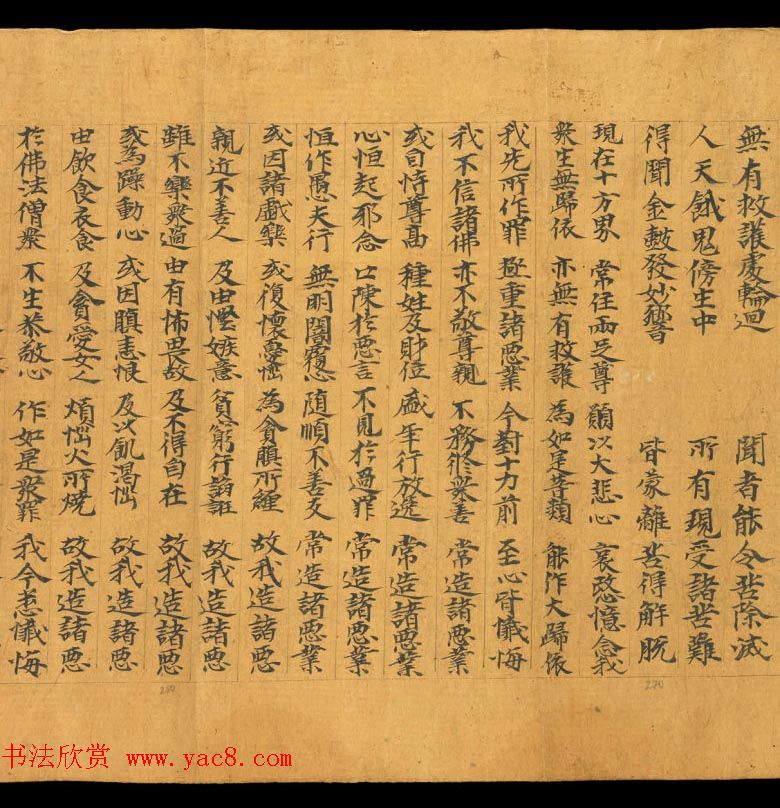 無有救護處輪迴 聞者能令苦除滅
人天餓鬼傍生中 所有現受諸苦難
得聞金鼓發妙響 皆蒙離苦得解脫
現在十方界 常住兩足尊 願以大悲心 哀愍憶念我
衆生無歸依 亦無有救護 為如是等類 能作大歸依
我先所作罪 極重諸惡業 今對十力前 至心皆懺悔
我不信諸佛 亦不敬尊親 不務修衆善 常造諸惡業
或自恃尊高 種姓及財位 盛年行放逸 常造諸惡業
心恒起邪念 口陳於惡言 不見於過罪 常造諸惡業
恒作愚夫行 無明闇覆心 随順不善友 常造諸惡業
或因諸戲樂 或復懷憂惱 為貪瞋所纏 故我造諸惡
親近不善人 及由慳嫉意 貧窮行諂誑 故我造諸惡
雖不樂衆過 由有怖畏故 及不得自在 故我造諸惡
或為躁動心 或因瞋恚恨 及以飢渴惱 故我造諸惡
由飲食衣食 及貪愛女人 煩惱火所燒 故我造諸惡
於佛法僧衆 不生恭敬心 作如是衆罪 我今悉懺悔
270
书法欣赏 www.yac8.com